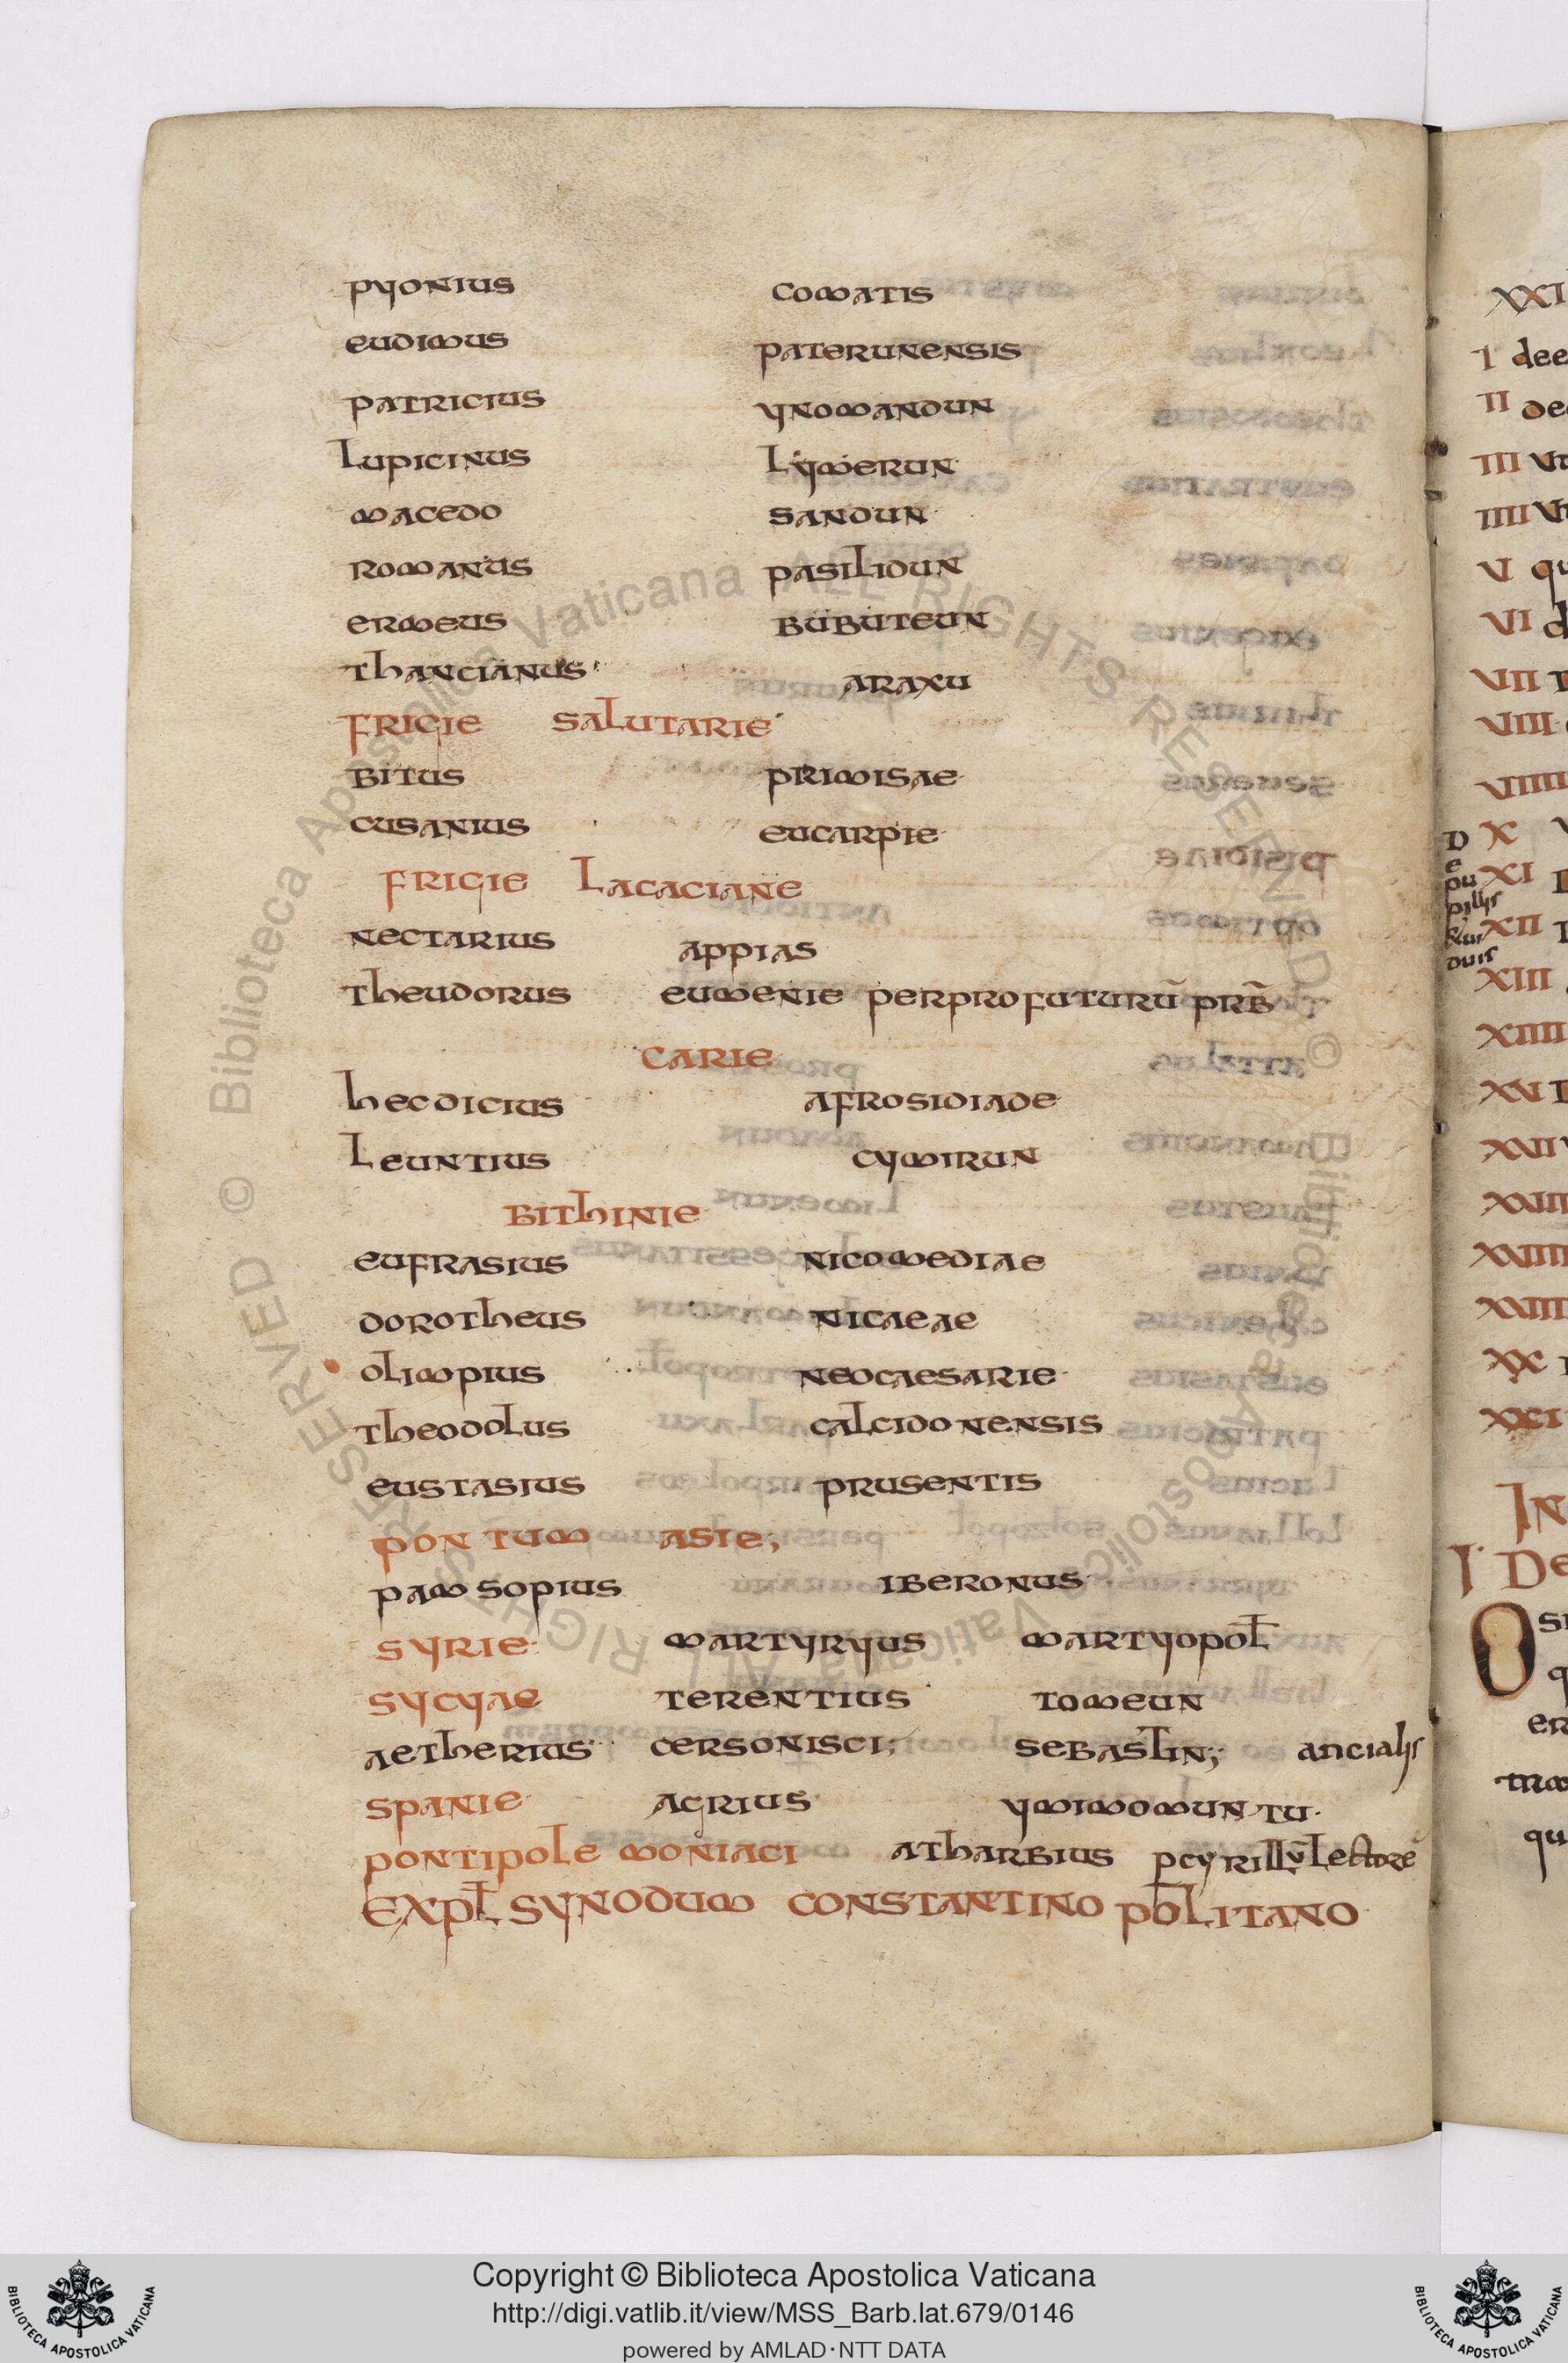 pyonius comatis
eudimus paterunensis
patricius ynomandun
Lupicinus Lymerun
macedo sandun
romanus pasilidun
ermeus bubuteun
thancianus araxu
frigie salutarie
bitus primisae
cusanius eucarpie
frigie Lacaciane
nectarius appias
theudorus eumenie perprofuturū prb̄
carie
hecdicius afrosidiade
Leuntius cymirun
bithinie
eufrasius nicomediae
dorotheus nicaeae
olimpius neocaesarie
theodolus calcidonensis
eustasius prusentis
pontum asie;
pamsopius iberonus
syrie martyryus martyopoł
sycyae terentius tomeun
aetherius cersonisci; sebastin; ancialis
spanie agrius ymimomuntu.
pontipole moniaci atharbius pcyrillū lectorē
expł synodum constantinopolitano
XXI
I dee
II de
III
IIII
V qu
VI d
VII
VIII
VIIII
X
XI
XII
XIII
XIIII
XV
XVI
XVII
XVIII
XVIIII
XX
XXI
D
e
pu
pillis
&
duis
IN
I De
O
q
er
qu
Copyright © Biblioteca Apostolica Vaticana
http://digi.vatlib.it/view/MSS_Barb.lat.679/0146
powered by AMLAD·NTT DATA
BIBLIOTECA APOSTOLICA VATICANA
BIBLIOTECA APOSTOLICA VATICANA
© Biblioteca Apostolica Vaticana ALL RIGHTS RESERVED
© Biblioteca Apostolica Vaticana ALL RIGHTS RESERVED